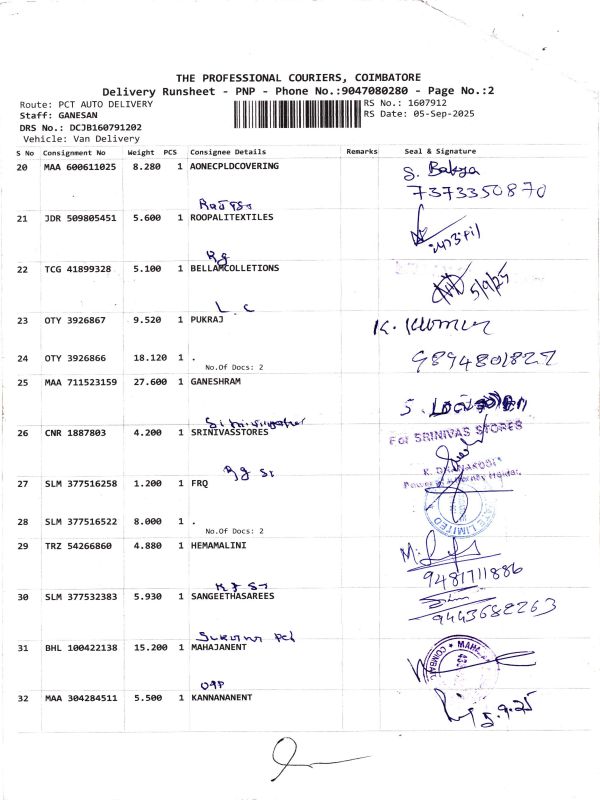 THE PROFESSIONAL COURIERS, COIMBATORE
Delivery Runsheet - PNP - Phone No.:9047080280 - Page No.:2
Route: PCT AUTO DELIVERY RS No.: 1607912
Staff: GANESAN RS Date: 05-Sep-2025
DRS No.: DCJB160791202
Vehicle: Van Delivery
S No Consignment No Weight PCS Consignee Details Remarks Seal & Signature
20 MAA 600611025 8.280 1 AONECPLDCOVERING
7373350870
21 JDR 509805451 5.600 1 ROOPALITEXTILES
22 TCG 41899328 5.100 1 BELLAMCOLLETIONS
5/9/25
L. C
23 OTY 3926867 9.520 1 PUKRAJ
K. Kumar
24 OTY 3926866 18.120 1 .
No.Of Docs: 2
25 MAA 711523159 27.600 1 GANESHRAM
26 CNR 1887803 4.200 1 SRINIVASSTORES
For SRINIVAS STORES
Rg St
27 SLM 377516258 1.200 1 FRQ
28 SLM 377516522 8.000 1 .
No.Of Docs: 2
29 TRZ 54266860 4.880 1 HEMAMALINI
9481711886
30 SLM 377532383 5.930 1 SANGEETHASAREES
9443682263
31 BHL 100422138 15.200 1 MAHAJANENT
OPP
32 MAA 304284511 5.500 1 KANNANANENT
5.9.25